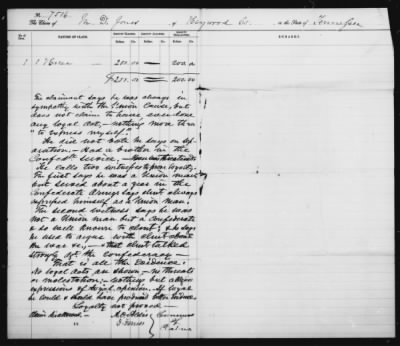 No. 7576
The Claim of Wm. D. Jones of Haywood Co. in the State of Tennessee
NATURE OF CLAIM. AMOUNT CLAIMED. AMOUNT ALLOWED. AMOUNT DISALLOWED. REMARKS.
Dollars. Cents. Dollars. Cents.
1 1 Horse 200.00 200.00
$200.00 200.00
The claimant says he was always in
sympathy with the Union Cause, but
does not claim to have ever done
any loyal act, nothing more than
"to express myself."
He did not vote he says on
Had a brother in the
Confedte service,
He calls two witnesses to prove loyalty.
The first says he was a Union man
but served about a year in the
Confederate Army & says clmt always
expressed himself as a Union man.
The second witness says he was
not a Union man but a Confederate
& so well known to clmt; & he says
he used to argue with clmt about
the war &c, & that clmt talked
strongly agt the confederacy
That is all the Evidence.
No loyal acts are shown, no threats
or molestation, nothing but
expressions of loyal opinion. If loyal
he could & should have produced better evidence
Loyalty not proved
Claim disallowed.
A. O. Aldis
Commrs
of
Claims